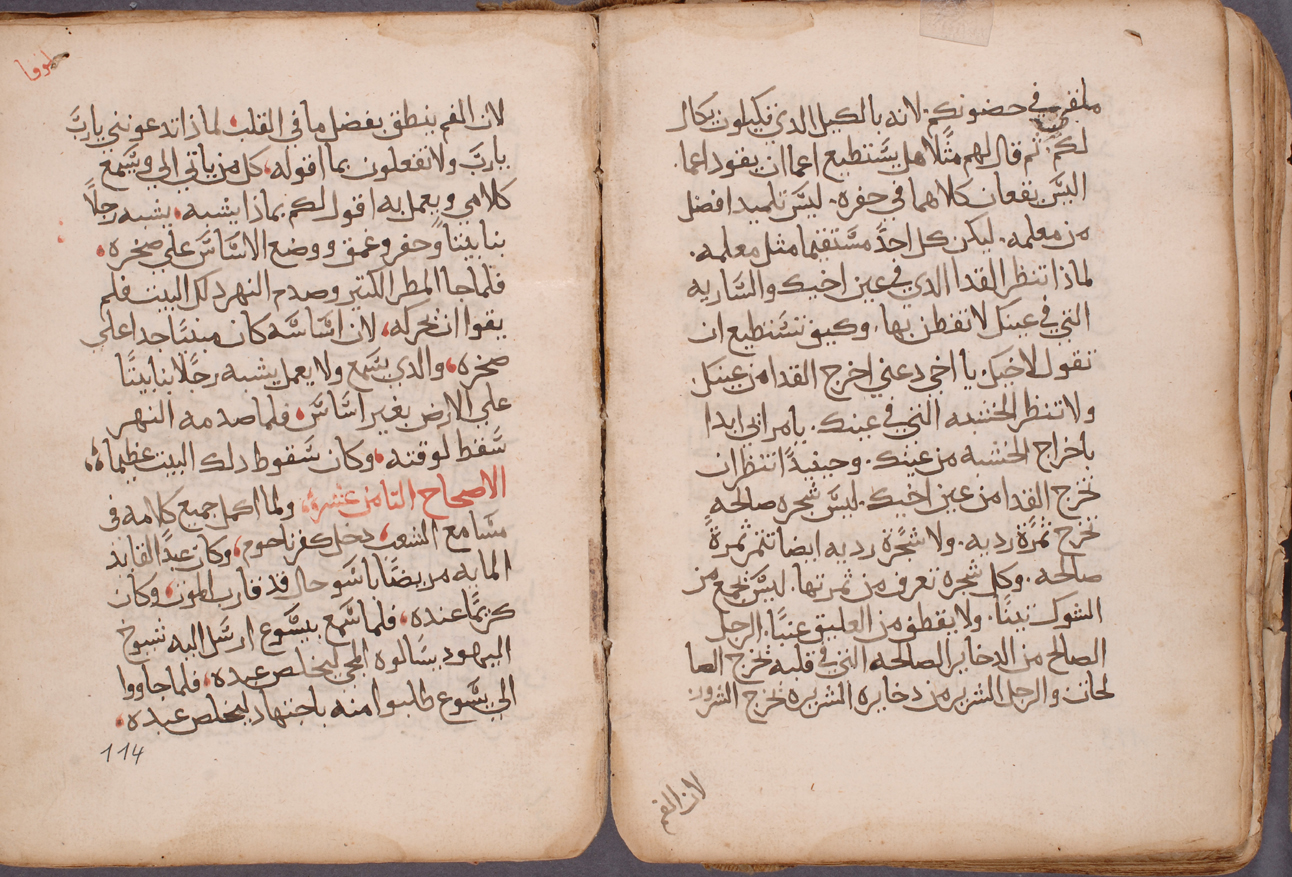 ملقي في حضونكم. لانه بالكيل الدي تكيلون يكال
لكم. تم قال لهم مثلًا هل يستطيع اعما ان يقود اعما.
اليس يقعان كلاهما في حفره. ليس تلميد افضل
من معلمه. ليكن كل احدٍ مستقيما مثل معلمه.
لماذا تنظر القدا الدي في عين اخيك والساريه
التي في عينك لا تفطن بها. وكيف تستطيع ان
تقول لاخيك يا اخي دعني اخرج القدا من عينك.
ولا تنظر الخشبه التي في عينك. يا مرايي ابدا
باخراج الخشبه من عينك. وحينيدًا تنظر ان
تخرج القدا من عين اخيك. ليس شجره صالحه
تخرج ثمرةً رديه. ولا شجرة رديه ايضا تتمر ثمرةً
صالحه. وكل شجره تعرف من ثمرتها. ليس يجمع من
الشوك تينًا. ولا يقطف من العليق عنبًا. الرجل
الصالح من الدخاير الصالحه التي في قلبه يخرج الصا
لحات والرجل الشرير من دخايره الشريره يخرج الشرور.
لان الفم
لوقا
لان الفم ينطق بفضل ما في القلب. لماذا تدعونني ياربَّ
ياربَّ ولا تفعلون بما اقوله. كل من ياتي الي ويسمع
كلامي ويعمل به اقول لكم بماذا يشبه. يشبه رجلًا
بنا بيتًا وحفر وعمق ووضع الاساس علي صخره.
فلما جا المطر الكتير وصدم النهر دلك البيت فلم
يقوا ان يحركه. لان اساسه كان مبنيًا جدا علي
صخره. والدي يسمع ولا يعمل يشبه رجلًا بنا بيتًا
علي الارض بغير اساس. فلما صدمه النهر
سقط لوقته. وكان سقوط دلك البيت عظيمًا.
الاصحاح التامن عشر. ولما اكمل جميع كلامه في
مسامع الشعب. دخل كفرناحوم. وكان عبدًا لقايد
المايه مريضًا باسو حال قد قارب الموت. وكان
كريمًا عنده. فلما سمع بيسوع ارسل اليه شيوخ
اليهود يسالوه المجي ليخلص عبده. فلما جاووا
الي يسوع طلبوا منه باجتهاد ليخلص عبده.
114